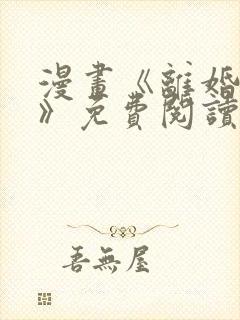 漫畫《離婚
》免費閱讀
吾無屋